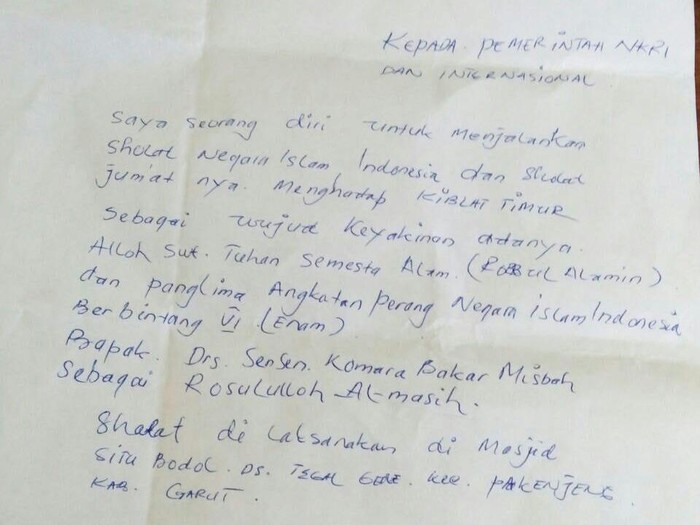 KEPADA. PEMERINTAH NKRI
DAN INTERNASIONAL
Saya seorang diri untuk menjalankan
Sholat Negara Islam Indonesia dan Sholat
jum'at nya. menghadap KIBLAT TIMUR
Sebagai wujud Keyakinan adanya.
Alloh Swt. Tuhan Semesta Alam. (Robbul Alamin)
dan panglima Angkatan perang Negara islam Indonesia
Berbintang VI (Enam)
Bapak. Drs. Sensen. Komara Bakar Misbah
Sebagai Rosululloh Al-masih.
Shalat di Laksanakan di Masjid
SITU BODOL. DS. TEGAL GEDE. KEC. PAKENJENG
KAB. GARUT.